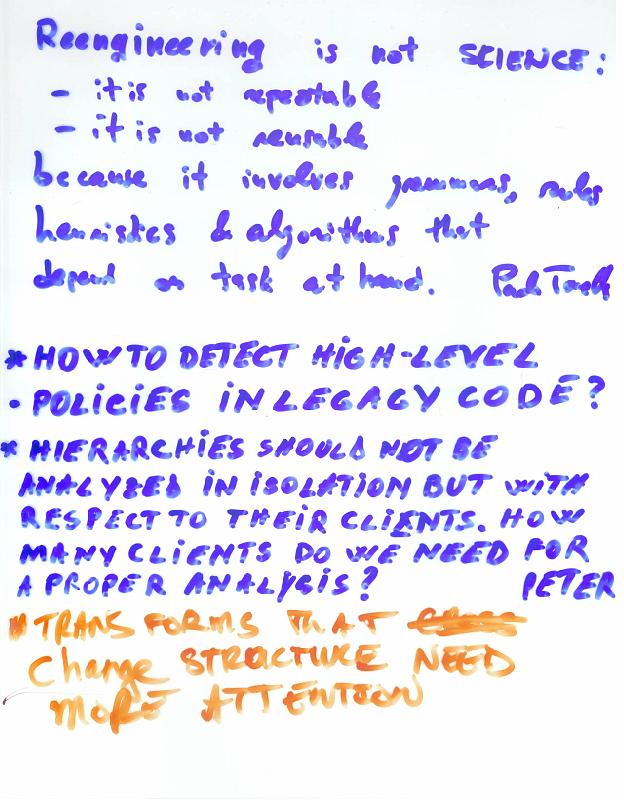 Reengineering is not SCIENCE:
- it is not repeatable
- it is not reusable
because it involves grammars, rules
heuristics & algorithms that
depend on task at hand. Paolo
* HOW TO DETECT HIGH-LEVEL
- POLICIES IN LEGACY CODE?
* HIERARCHIES SHOULD NOT BE
ANALYZED IN ISOLATION BUT WITH
RESPECT TO THEIR CLIENTS. HOW
MANY CLIENTS DO WE NEED FOR
A PROPER ANALYSIS? PETER
* TRANSFORMS THAT
Change STRUCTURE NEED
MORE ATTENTION